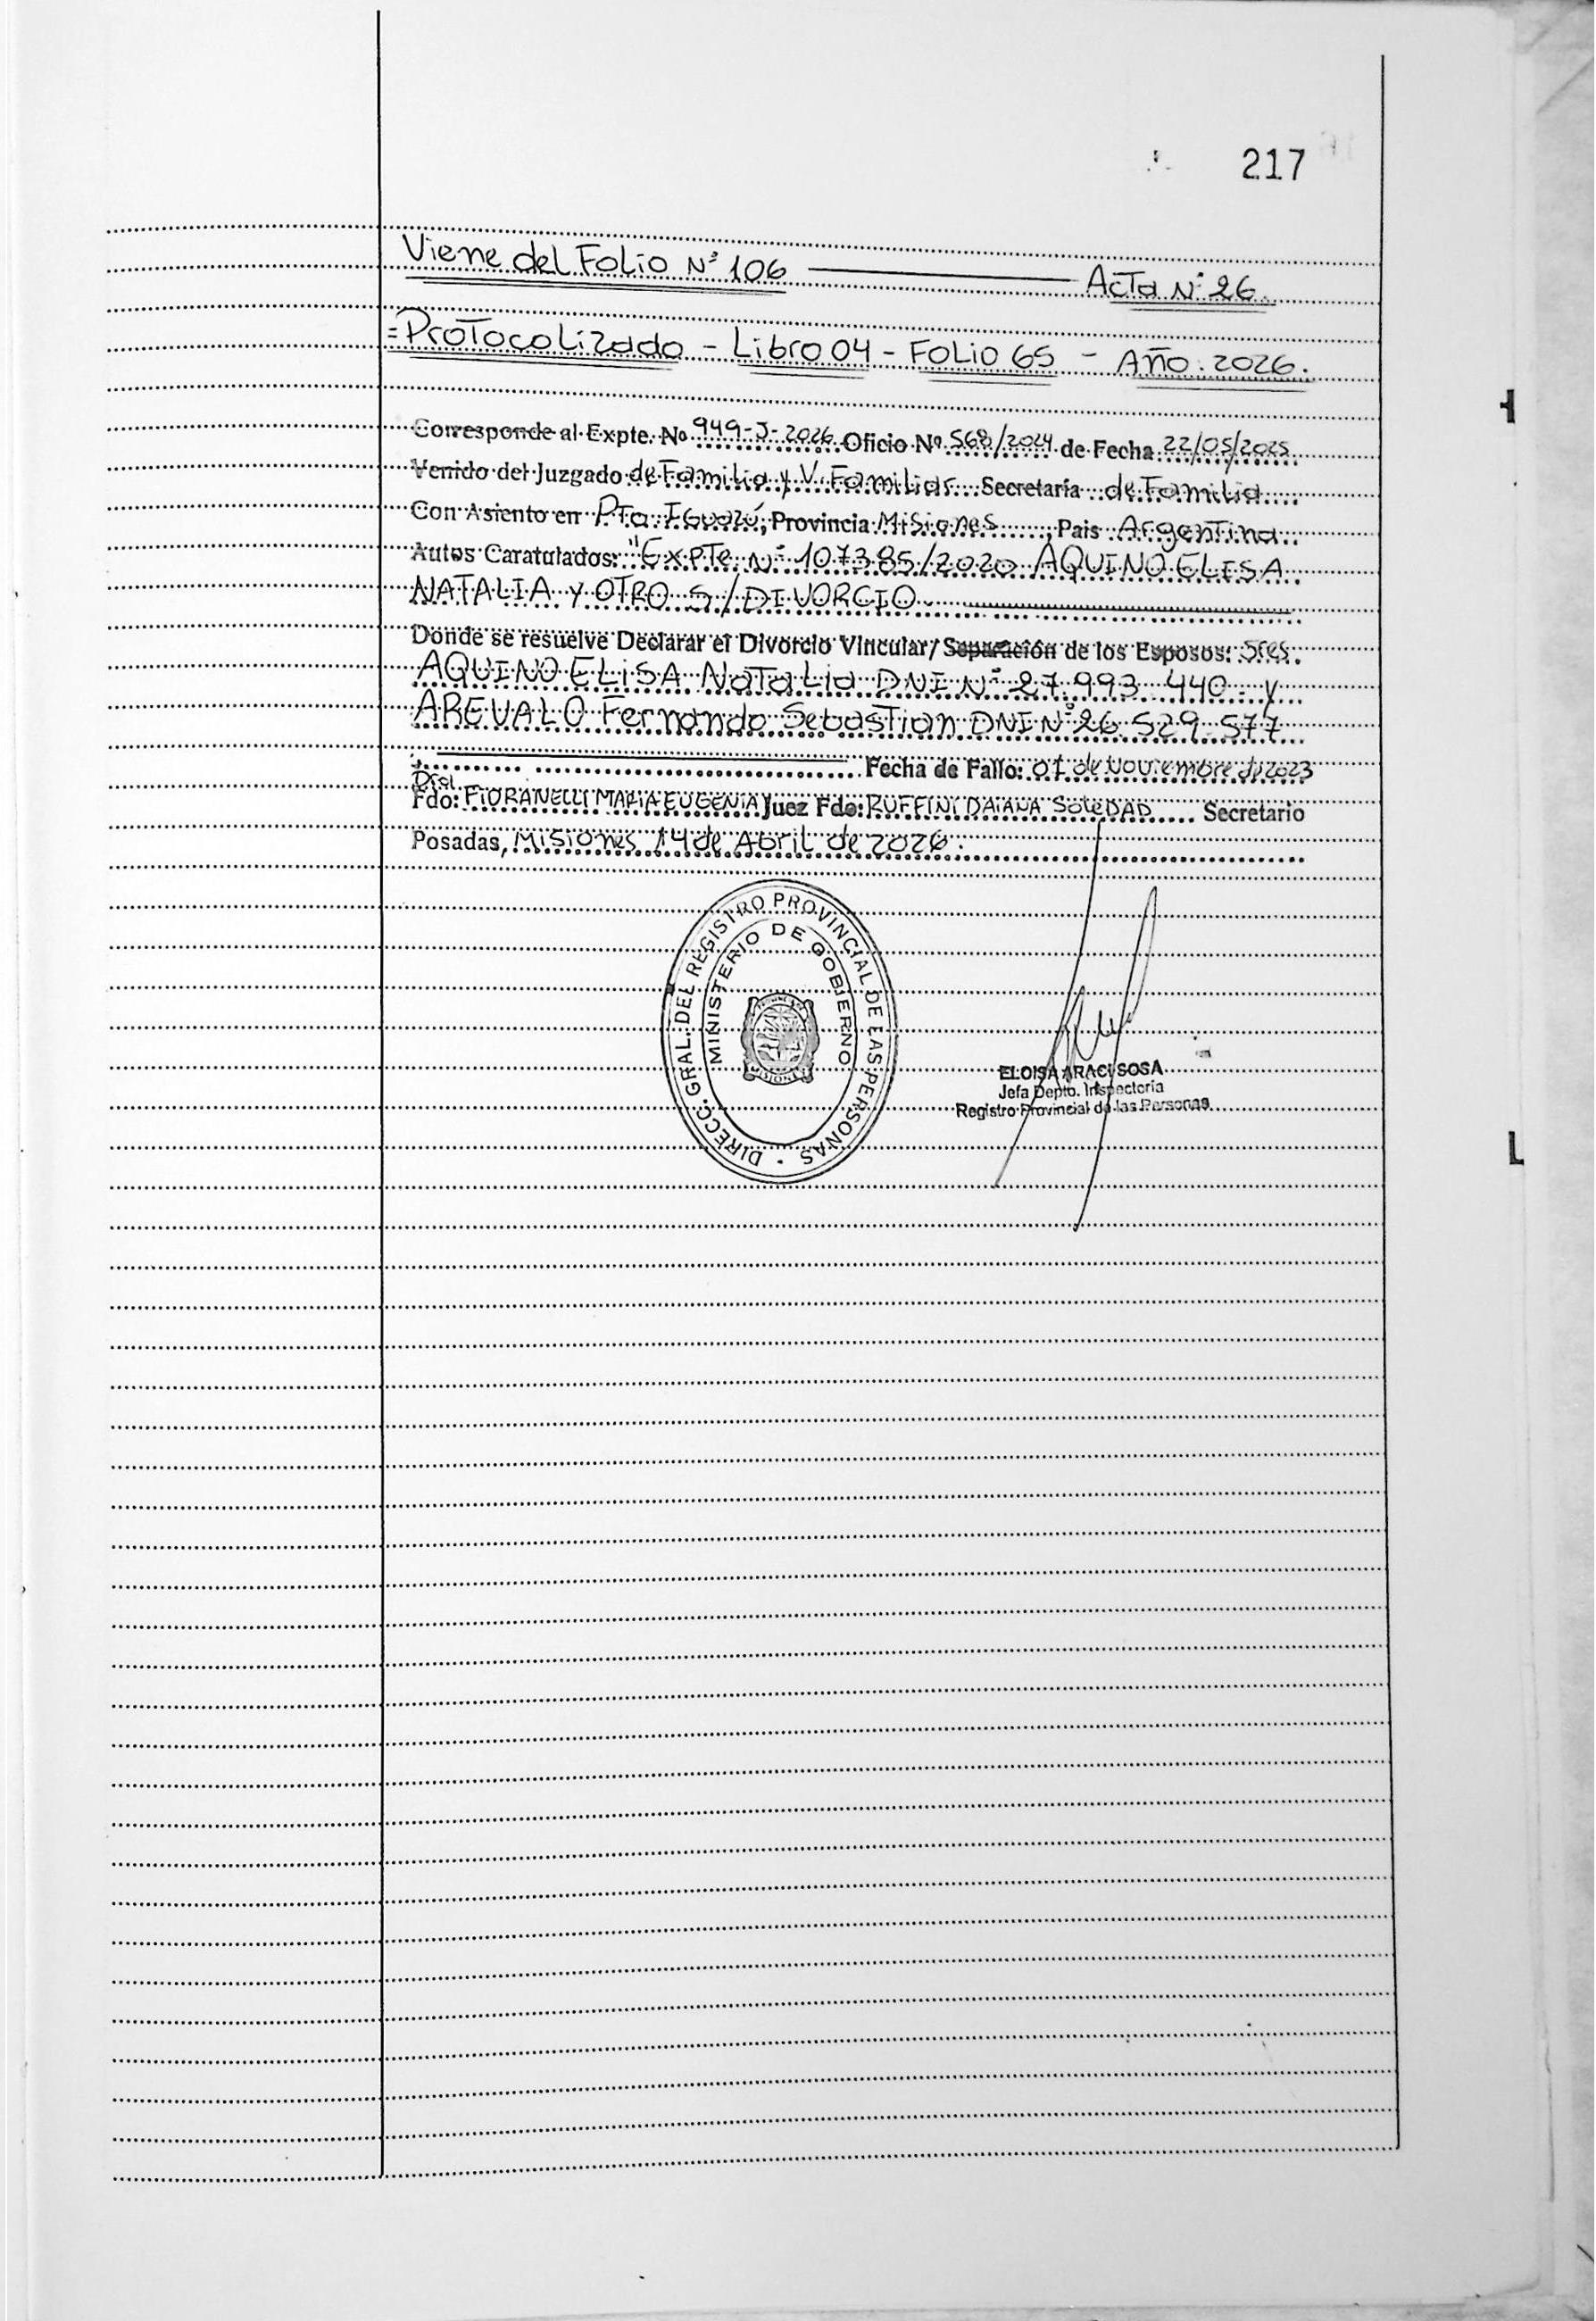 217
Viene del Folio N° 106 Acta N° 26
= Protocolizado - Libro 04 - Folio 65 - Año 2026.
Corresponde al Expte. Nº 949-J-2026 Oficio Nº 568/2024 de Fecha 22/05/2025
Venido del Juzgado de Familia y V. Familiar Secretaría de Familia
Con Asiento en Pto. Iguazú, Provincia Misiones; Pais Argentina
Autos Caratulados: "Expte. N° 107385/2020 AQUINO ELISA
NATALIA y OTRO S/ DIVORCIO
Donde se resuelve Declarar el Divorcio Vincular/ Separación de los Esposos: Sres.
AQUINO ELISA Natalia DNI N° 27.993.440 - y
AREVALO Fernando Sebastian DNI N° 26.529.577
Fecha de Fallo: 01 de Noviembre de 2023
Dra.
Fdo: FIORANELLI MARIA EUGENIA Juez Fdo: RUFFINI DAIANA SOLEDAD Secretario
Posadas, Misiones 14 de Abril de 2026.
DIRECC. GRAL. DEL REGISTRO PROVINCIAL DE LAS PERSONAS
MINISTERIO DE GOBIERNO
MISIONES
ELOISA ARACI SOSA
Jefa Depto. Inspectoría
Registro Provincial de las Personas